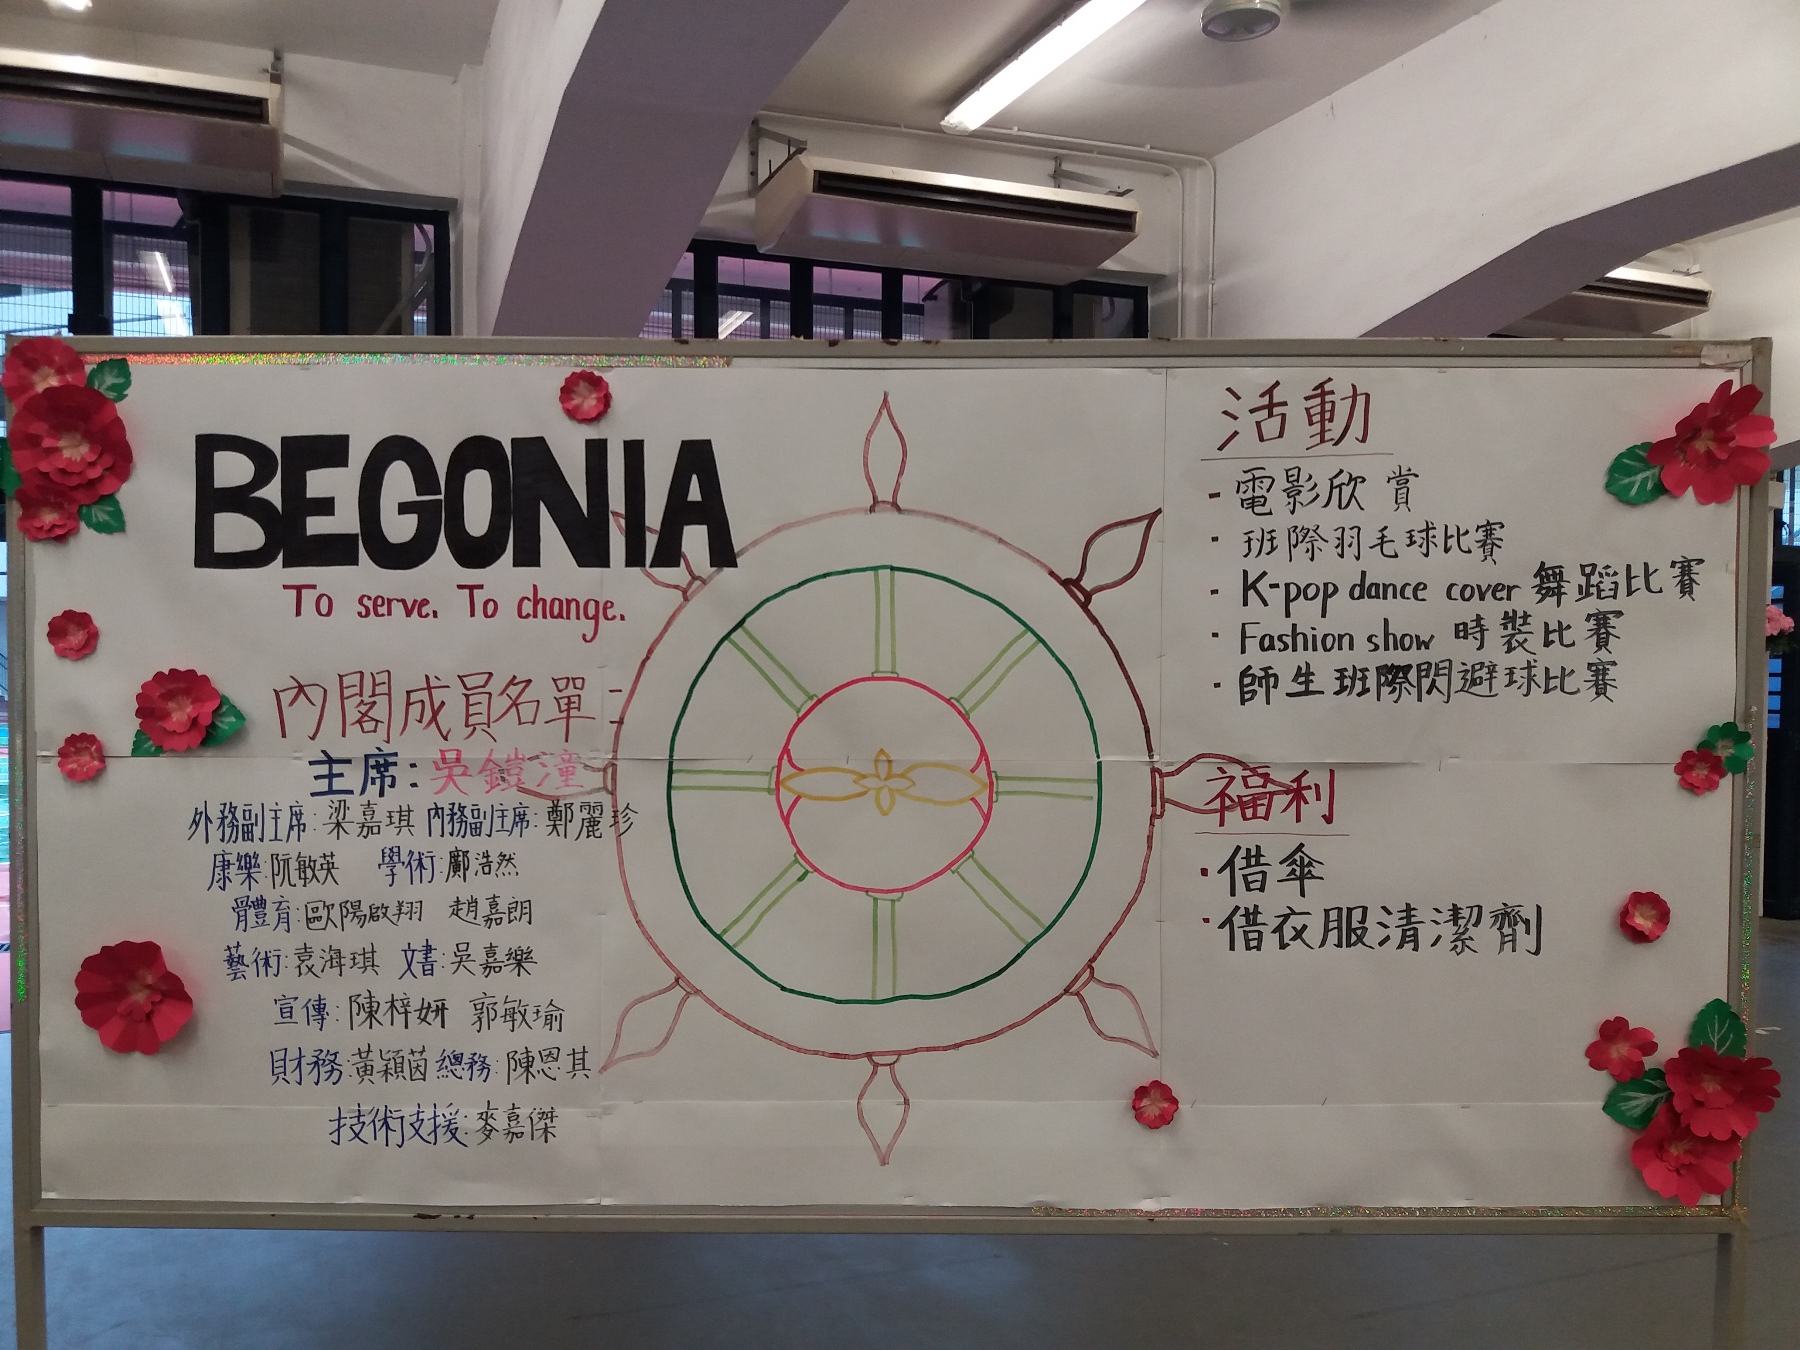 BEGONIA
To serve. To change.
內閣成員名單:
主席:吳鎧潼
外務副主席:梁嘉琪 內務副主席:鄭麗珍
康樂:阮敏英 學術:鄺浩然
體育:歐陽啟翔 趙嘉朗
藝術:袁海琪 文書:吳嘉樂
宣傳:陳梓妍 郭敏瑜
財務:黃穎茵 總務:陳恩其
技術支援:麥嘉傑
活動
- 電影欣賞
- 班際羽毛球比賽
- K-pop dance cover 舞蹈比賽
- Fashion show 時裝比賽
- 師生班際閃避球比賽
福利
·借傘
·借衣服清潔劑